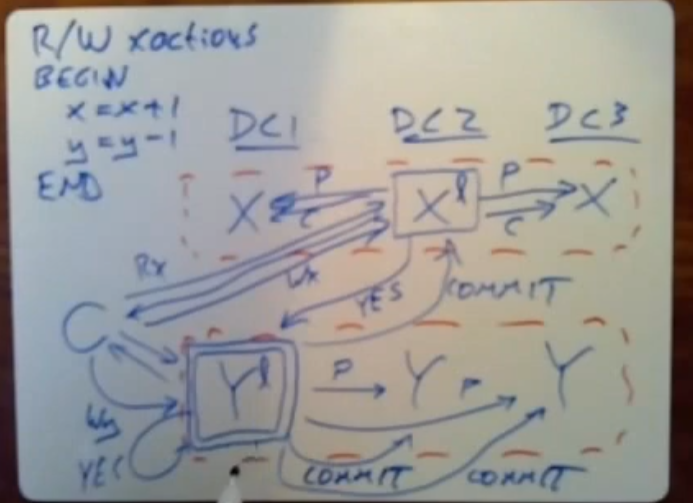 R/W xactions
BEGIN
x = x + 1
y = y - 1
END
DC1 DC2 DC3
P P
X X l X
C C
Rx
Wx
YES COMMIT
C
Y l P Y P Y
Wy
YES
COMMIT COMMIT